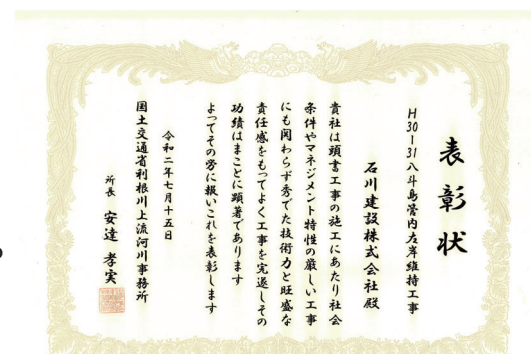 表彰状
H30-31八斗島管内左岸維持工事
石川建設株式会社殿
貴社は頭書工事の施工にあたり社会
条件やマネジメント特性の厳しい工事
にも関わらず秀でた技術力と旺盛な
責任感をもってよく工事を完遂しその
功績はまことに顕著であります
よってその労に報いこれを表彰します
令和二年七月十五日
国土交通省利根川上流河川事務所
所長 安達孝実